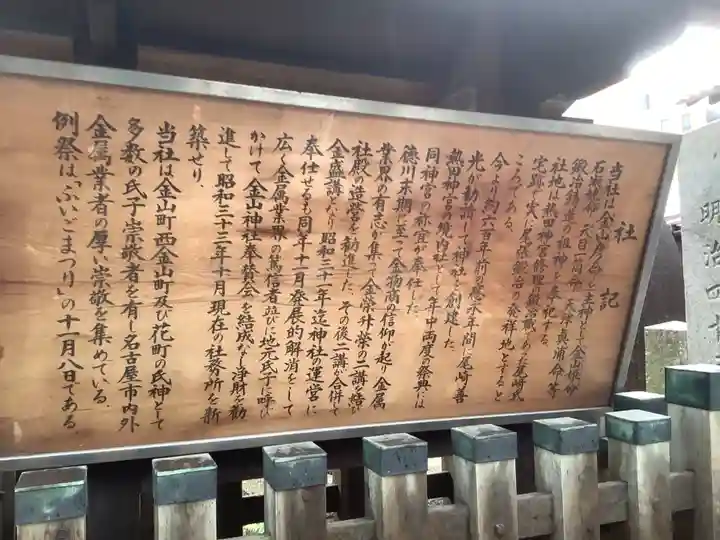 社記
当社は金山彦命を主神として金山姫命
石凝姥命 天目一箇命 天津真浦命等
鍛冶鋳造の祖神を奉祀する。
社地は熱田神宮修理鍛冶職であった尾崎氏
宅跡で実に尾張鍛冶の発祥地とすると
ころである。
今より約六百年前の応永年間に尾崎善
光が勧請して神社を創建した。
熱田神宮の境内社として年中両度の祭典には
同神宮の祢宜が奉仕した。
徳川末期に至って金物商の信仰が起り金属
業界の有志が集って金栄升栄の二講を結び
社殿の造営を勧進した その後二講が合併して
金盛講となり 昭和三十一年迄神社の運営に
奉仕せるも同年十一月発展的解消をして
広く金属業界の篤信者並びに地元氏子に呼び
かけて金山神社奉賛会を結成なし浄財を勧
進して昭和三十三年十月現在の社務所を新
築せり、
当社は金山町西金山町及び花町の氏神として
多数の氏子崇敬者を有し名古屋市内外
金属業者の厚い崇敬を集めている。
例祭は「ふいごまつり」の十一月八日である
明治四